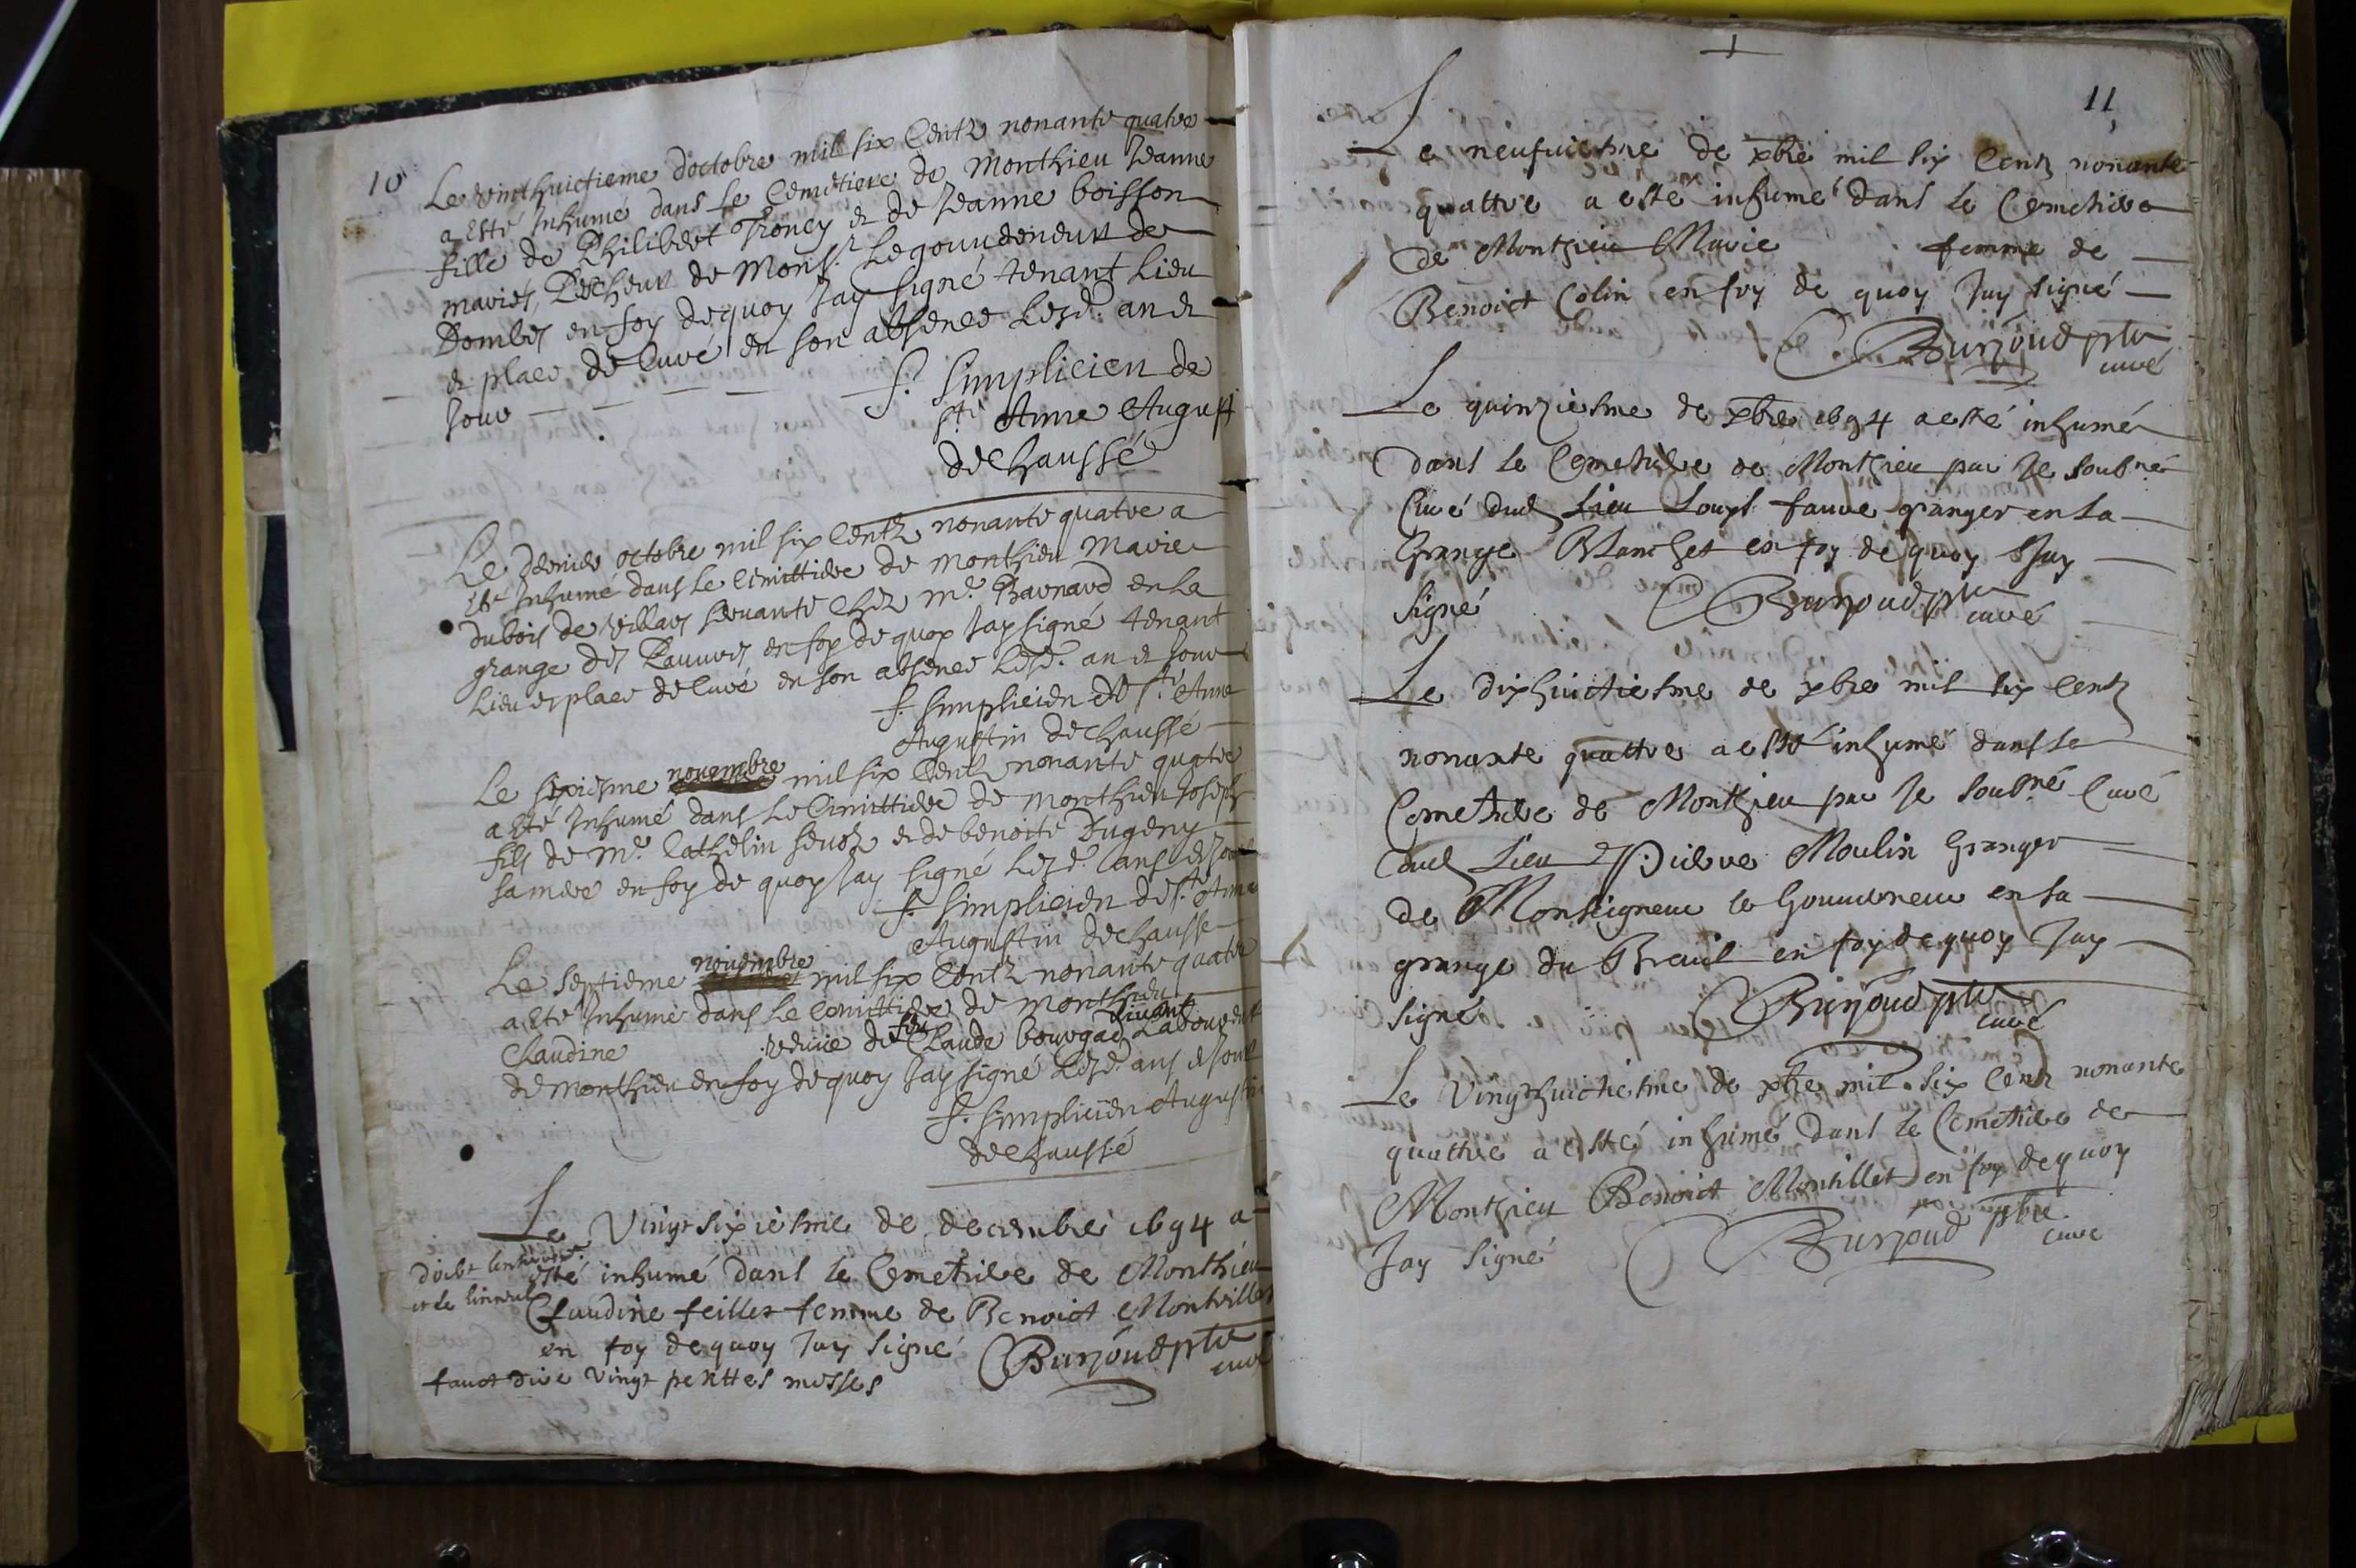 10
Le vinthuictieme doctobre mil six Centz nonante quatre
a esté Inhumé dans Le Cemetiere de Monthieu Jeanne
fille de Philibert Troncy et de Jeanne boisson
mariés, Pescheur de Monsr. Le gouverneur de
Dombes en foy dequoy Jay signé tenant Lieu
et place de Curé en son absence Lesd. an et
Jour
f. Simplicien de
ste Anne August
dechaussé
Le dernier octobre mil six Centz nonante quatre a
esté Inhumé dans Le Cimittiere de Monthieu Marie
dubois de Villars servante chez Mr. Barnard en La
grange des Pauvres en foy de quoy Jay signé tenant
Lieu et place de Curé en son absence Lesd. an et Jour
f. Simplicien de ste Anne
Augustin dechaussé
Le sixiesme novembre mil six Centz nonante quatre
a esté Inhumé dans Le Cimittiere de Monthieu Joseph
fils de Mr. Cathelin et de benoite Dugeny
sa mere en foy de quoy Jay signé Lesd. ans et Jour
f. Simplicien de ste Anne
Augustin dechaussé
Le septieme novembre mil six Centz nonante quatre
a esté Inhumé dans Le Cimittiere de Monthieu
Claudine vefve de feu Claude bourgad vivant Laboureur
de Monthieu en foy de quoy Jay signé Lesd. ans et Jour
f. Simplicien Augustin
dechaussé
Le Vingt sixiesme de decembre 1694 a
esté inhumé dans le Cemetiere de Monthieu
doibt
et le linceul
Claudine feillet femme de Benoict Montillet
en foy de quoy Jay signé Burjoud ptre
curé
faut dire vingt petittes messes
11
Le neufuiesme de xbre mil six Centz nonante
quattre a esté inhumé dans le Cemetiere
de Monthieu Marie femme de
Benoict Colin en foy de quoy Jay signé
Burjoud ptre
curé
Le quinziesme de xbre 1694 a esté inhumé
dans le Cemetiere de Monthieu par Je soubné
Curé dud Lieu Louys fauve granger en La
Grange Blanchet en foy de quoy Jay
signé Burjoud ptre
curé
Le dixhuictiesme de xbre mil six Centz
nonante quattre a esté inhumé dans le
Cemetiere de Monthieu par Je soubné Curé
dud Lieu Pierre Moulin Granger
de Monseigneur le Gouverneur en sa
grange du Breuil en foy de quoy Jay
signé Burjoud ptre
curé
Le Vingthuictiesme de xbre mil six Centz nonante
quattre a esté inhumé dans le Cemetiere de
Monthieu Benoict Montillet en foy de quoy
Jay signé Burjoud ptre
curé